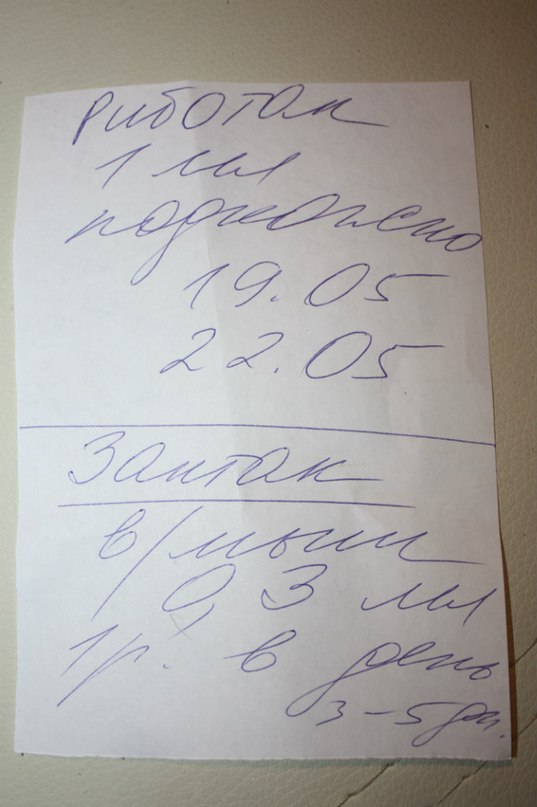 Риботан
1 мл
подкожно
19.05
22.05
Зантак
в/мышц
0,3 мл
1р. в день
3-5 дн.